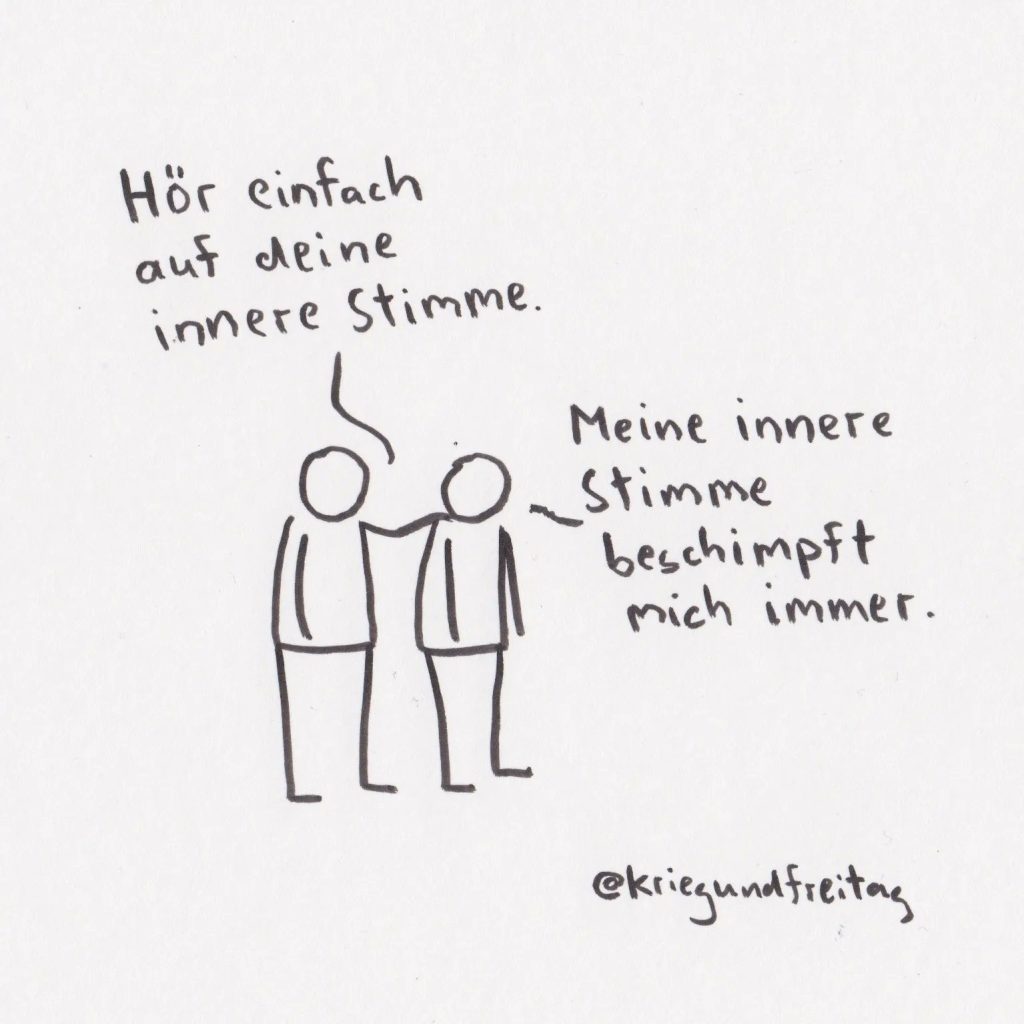 Hör einfach
auf deine
innere Stimme.
Meine innere
Stimme
beschimpft
mich immer.
@kriegundfreitag